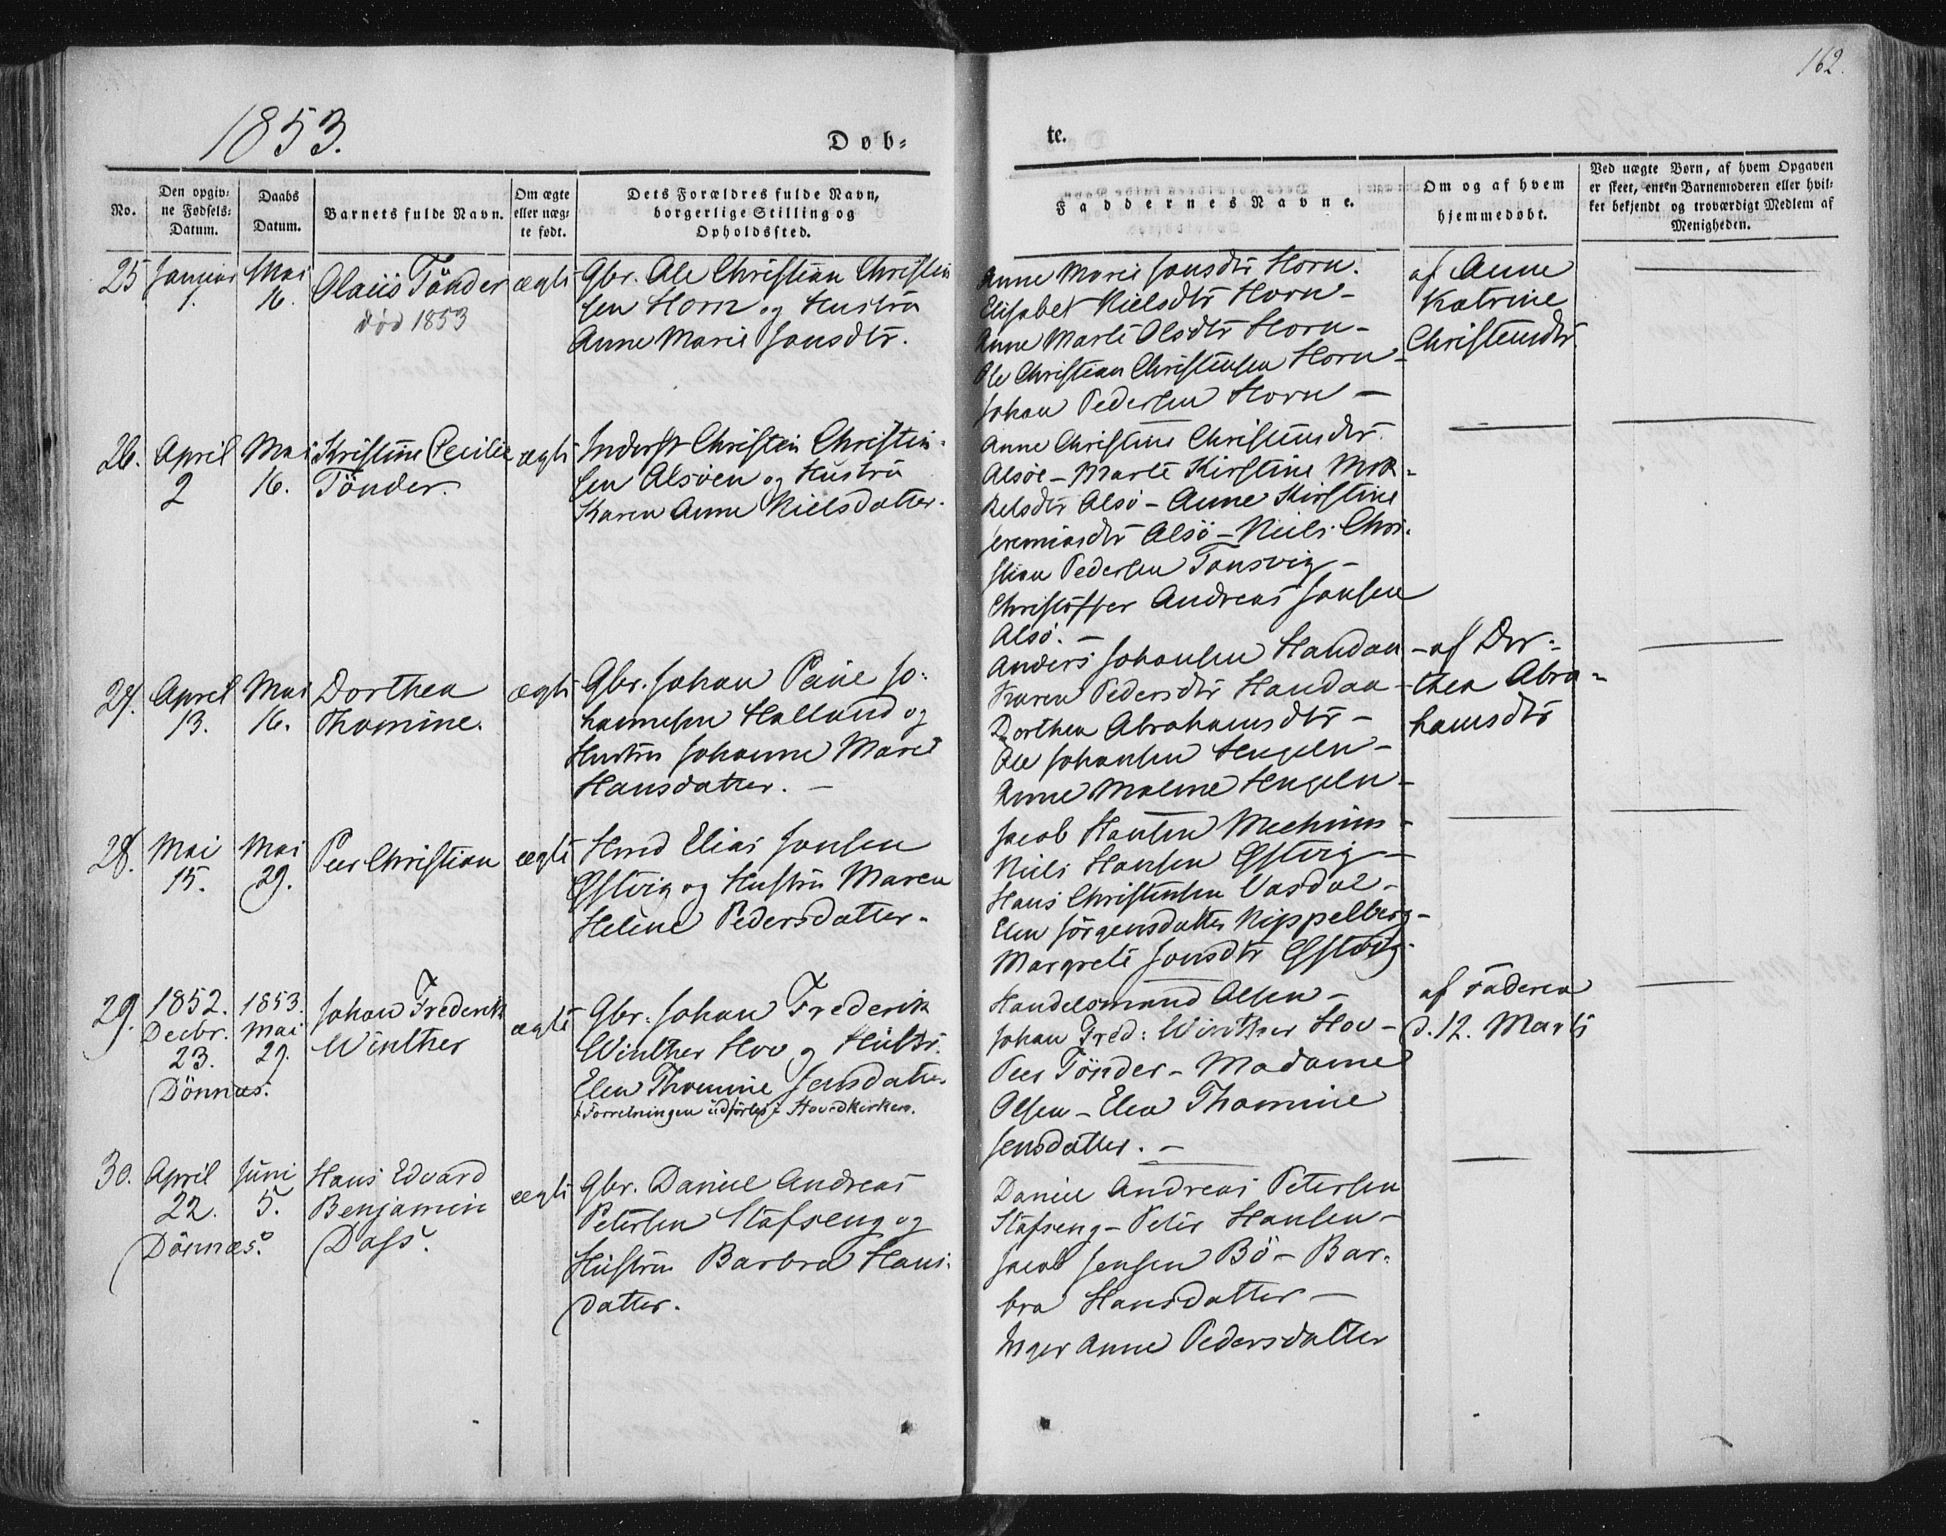 162.
1853.
Dob=
te.
No.
Den opgiv=
ne Fodsels=
Datum.
Daabs
Datum.
Barnets fulde Navn.
Om ægte
eller uæg=
te fodt.
Dets Forældres fulde Navn,
borgerlige Stilling og
Opholdssted.
Faddernes Navne.
Om og af hvem
hjemmedobt.
Ved uægte Born, af hvem Opgaven
er skeet, enten Barnemoderen eller hvil=
ket bekjendt og troværdigt Medlem af
Menigheden.
25
Januar
1.
Mai
16.
Olaus Tönder
død 1853
ægte
Gbr. Ole Christian Christen
sen Horn og Hustru
Anne Marie Jonsdtr.
Anne Marie Jonsdtr Horn.
Elisabet Nielsdtr Horn -
Anne Marte Olsdtr Horn -
Ole Christian Christensen Horn -
Johan Pedersen Horn -
af Anne
Katrine
Christensdtr
26.
April
2
Mai
16.
Kristine Cecilie
Tönder.
ægte
Inderst Christen Christen-
sen Alsöen og Hustru
Karen Anne Nielsdatter.
Anne Christine Christensdtr.
Alsöe - Marte Kirstine Mik-
kelsdtr Alsö - Anne Kirstine
Jeremiasdtr Alsö - Niels Chri-
stian Pedersen Tonsvig -
Christoffer Andreas Jonsen
Alsö. -
27.
April
13.
Mai
16.
Dorthea
Thomine.
ægte
Gbr. Johan Peine Jo-
hannesen Holland og
Hustru Johanne Marie
Hansdatter. -
Anders Johansen Handaa -
Karen Pedersdtr Handaa -
Dorthea Abrahamsdtr -
Ole Johansen Hegeln -
Anne Malene Hegeln -
af Dor-
thea Abra-
hamsdtr
28.
Mai
15.
Mai
29.
Peer Christian
ægte
Hmd Elias Jonsen
Østvig og Hustru Maren
Helene Pedersdatter.
Jacob Hansen -
Niels Hansen Østvig -
Hans Christensen Vasdal -
Elen Jörgensdatter Nippelberg -
Margrete Jonsdtr Østvig.
29.
1852.
Decbr.
23.
Dönnæs.
1853.
Mai
29.
Johan Frederik
Winther
ægte
Gbr. Johan Frederik
Winther Hov og Hustr.
Elen Thomine Jensdatter
Forretningen udförtes i Hovedkirken.
Handelsmand Olsen -
Johan Fred: Winther Hov -
Peer Tönder - Madame
Olsen - Elen Thomine
Jensdatter. -
af Faderen
d. 12. Marts
30.
April
22.
Dönnæs.
Juni
5.
Hans Edvard
Benjamin
Dass.
ægte
Gbr. Daniel Andreas
Petersen Stafseng og
Hustru Barbra Hans-
datter.
Daniel Andreas Petersen
Stafseng - Peter Hansen -
Jacob Jensen Bö - Bar-
bra Hansdatter -
Inger Anne Pedersdatter